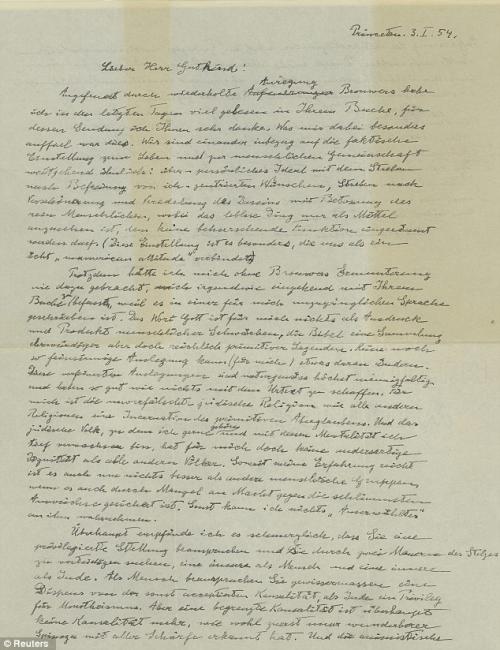 Princeton. 3. I. 54.
Lieber Herr Gutkind!
Anregung
Angefeuert durch wiederholte Brouwers habe
ich in den letzten Tagen viel gelesen in Ihrem Buche, für
dessen Sendung ich Ihnen sehr danke. Was mir dabei besonders
auffiel war dies. Wir sind einander inbezug auf die faktische
Einstellung zum Leben und zur menschlichen Gemeinschaft
weitgehend ähnlich: persönliches Ideal mit dem Streben
nach Befreiung von ich-zentrierten Wünschen, Streben nach
Verschönerung und Veredelung des Daseins mit Betonung des
rein Menschlichen, wobei das leblose Ding nur als Mittel
anzusehen ist, dem keine beherrschende Funktion eingeräumt
werden darf. (Diese Einstellung ist es besonders, die uns als ein
echt „unamerican attitude" verbindet)
Trotzdem hätte ich mich ohne Brouwers Ermunterung
nie dazu gebracht, mich irgendwie eingehend mit Ihrem
Buche zu befassen, weil es in einer für mich unzugänglichen Sprache
geschrieben ist. Das Wort Gott ist für mich nichts als Ausdruck
und Produkt menschlicher Schwächen, die Bibel eine Sammlung
ehrwürdiger aber doch reichlich primitiver Legenden. Keine noch
so feinsinnige Auslegung kann (für mich) etwas daran ändern.
Diese verfeinerten Auslegungen sind naturgemäss höchst mannigfaltig
und haben so gut wie nichts mit dem Urtext zu schaffen. Für
mich ist die unverfälschte jüdische Religion wie alle anderen
Religionen eine Incarnation des primitiven Aberglaubens. Und das
jüdische Volk, zu dem ich gerne gehöre und mit dessen Mentalität ich
tief verwachsen bin, hat für mich doch keine andersartige
Dignität als alle anderen Völker. Soweit meine Erfahrung reicht
ist es auch um nichts besser als andere menschliche Gruppen,
wenn es auch durch Mangel an Macht gegen die schlimmsten
Auswüchse gesichert ist. Sonst kann ich nichts „Auserwähltes"
an ihm wahrnehmen.
Überhaupt empfinde ich es schmerzlich, dass Sie eine
privilegierte Stellung beanspruchen und sie durch zwei Mauern des Stolzes
zu verteidigen suchen, eine äussere als Mensch und eine innere
als Jude. Als Mensch beanspruchen Sie gewissermassen einen
Dispens von der sonst acceptierten Kausalität, als Jude ein Privileg
für Monotheismus. Aber eine begrenzte Kausalität ist überhaupt
keine Kausalität mehr, wie wohl zuerst unser wunderbarer
Spinoza mit aller Schärfe erkannt hat. Und die animistische
Reuters